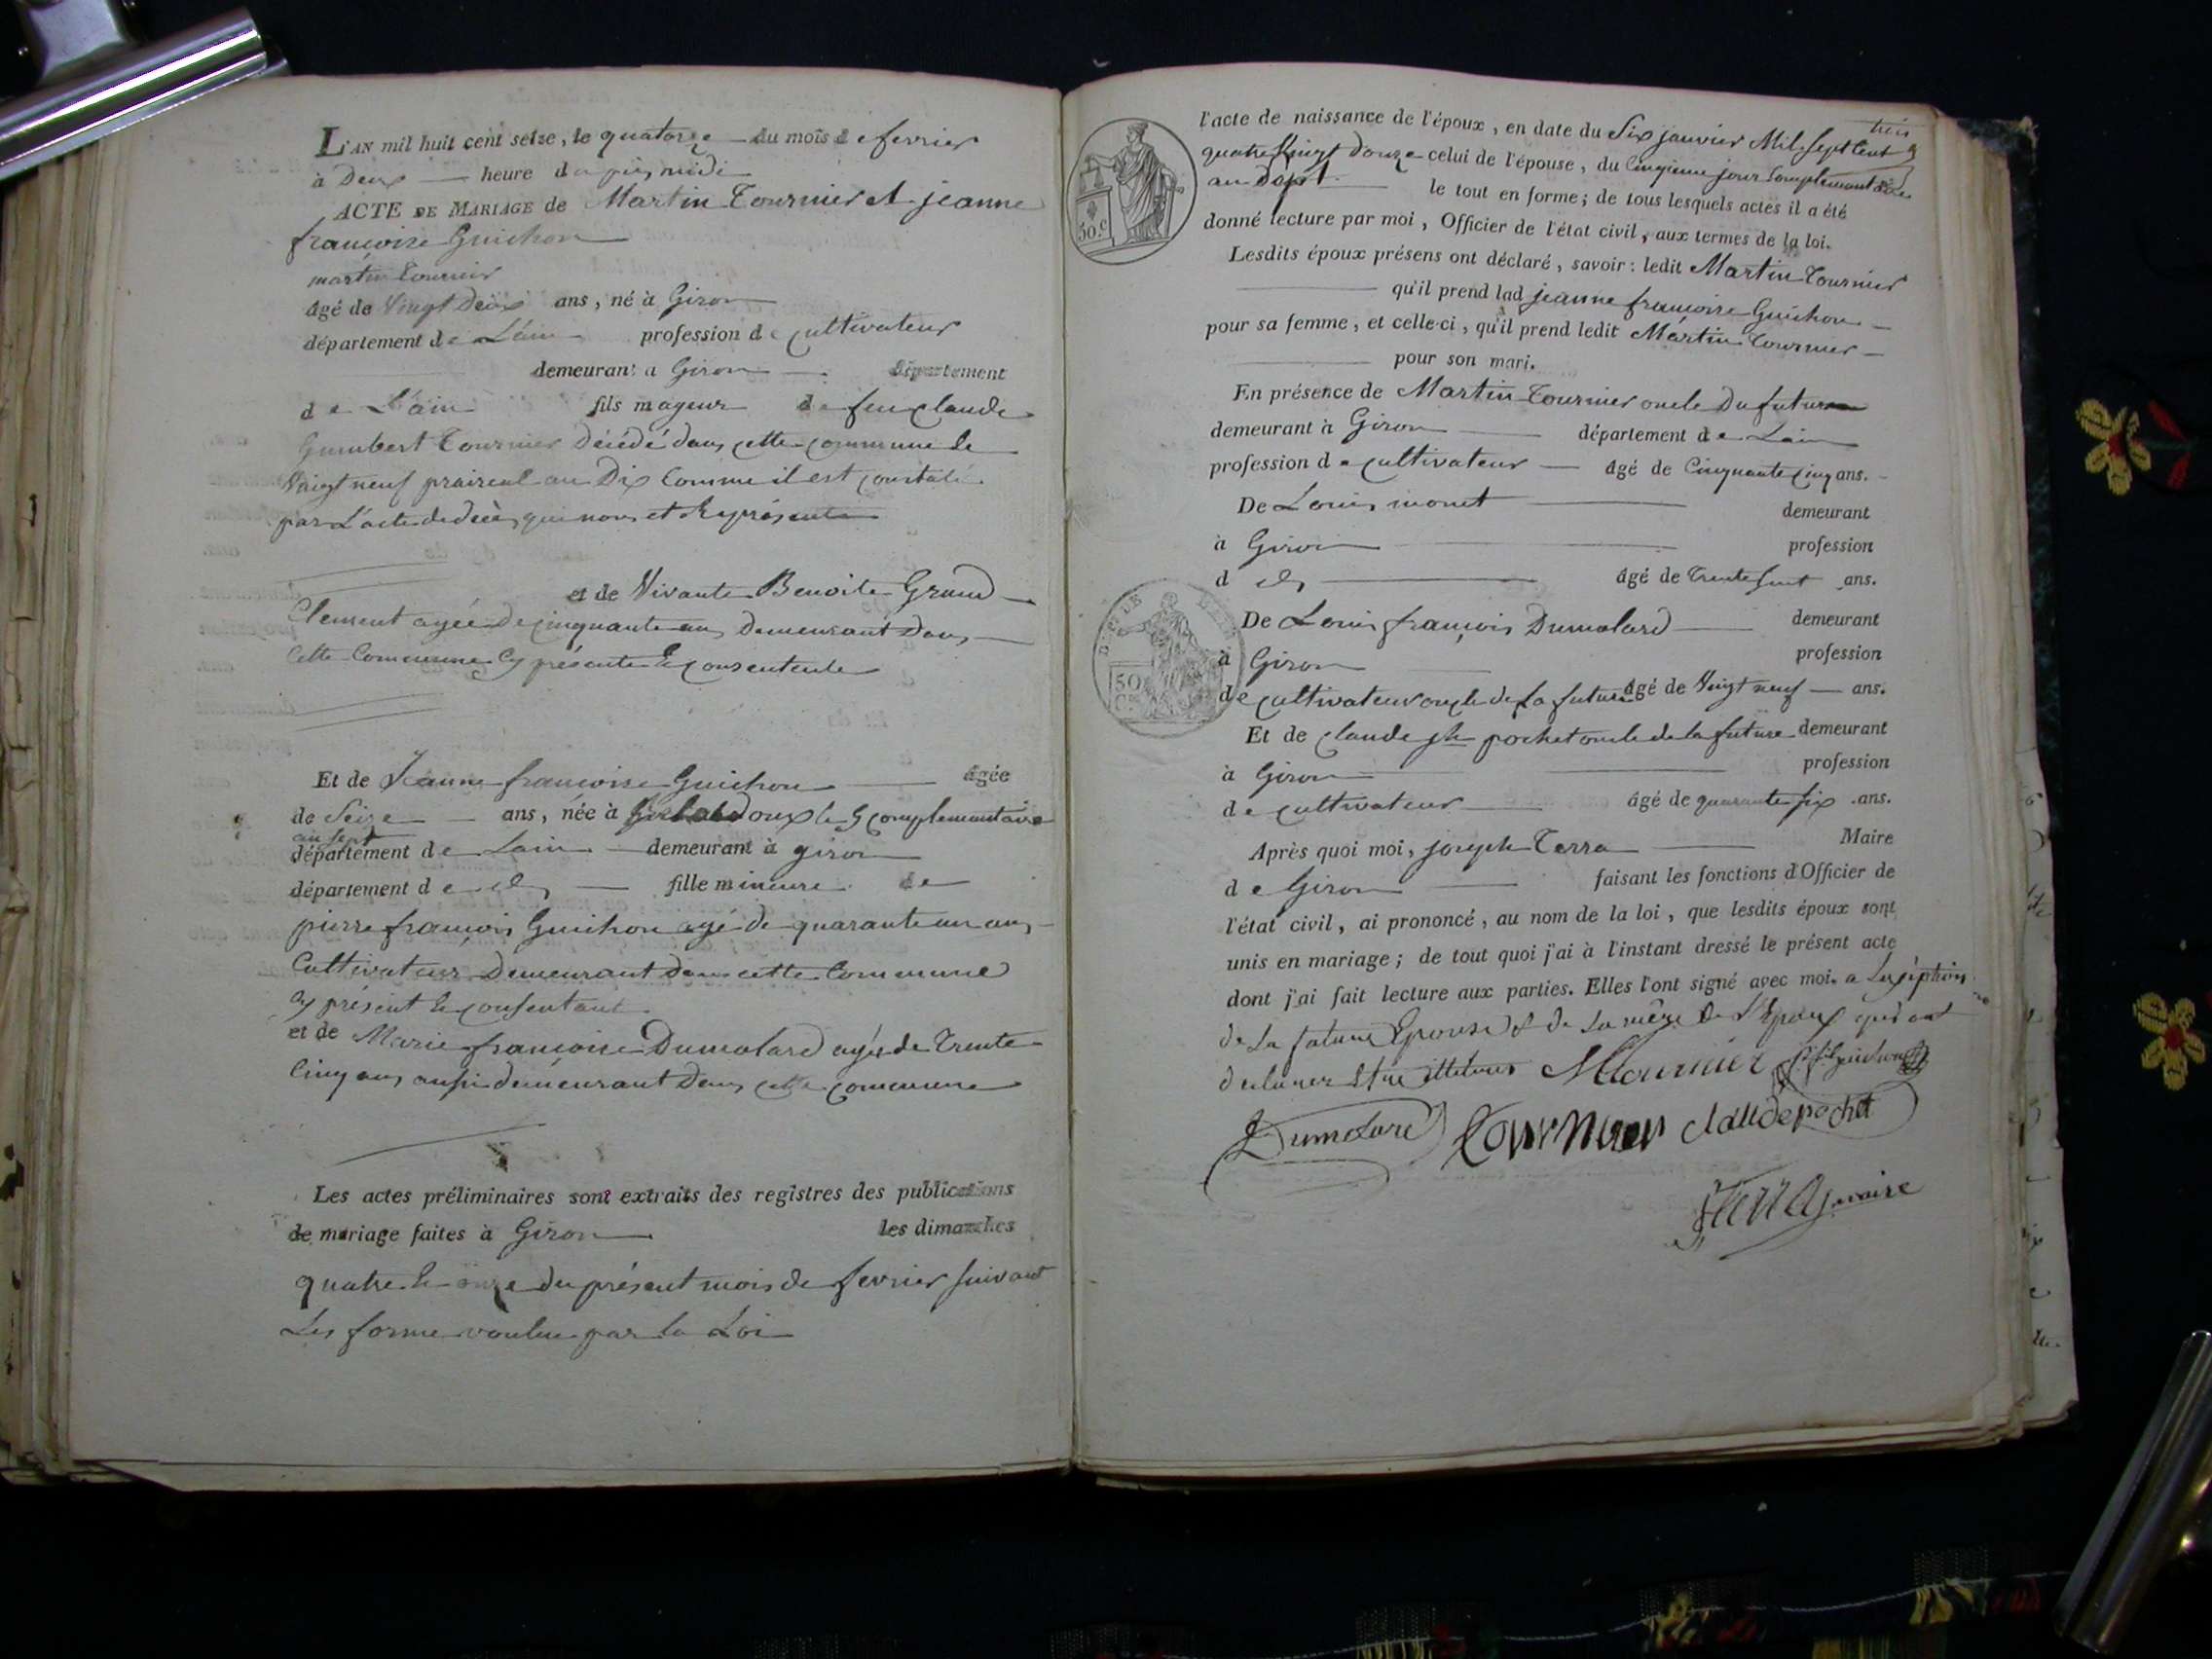 L'AN mil huit cent seize, le quatorze du mois de fevrier
à Deux heure daprès midi
ACTE DE MARIAGE de Martin Tournier et jeanne
françoise Guichon
martin tournier
âgé de Vingt Deux ans, né à Giron
département de L'ain profession de cultivateur
demeurant à Giron département
de L'ain fils mageur de feu claude
Gumbert Tournier Décédé dans cette commune le
Vaingt neuf praireal an Dix Comme il est constaté
par L'acte de décès qui nous et Représente
et de Vivante Benoite Grand
Clement agée de cinquante ans Demeurant dans
Cette Commune Cy présente & consentente
Et de Jeanne françoise Guichon âgée
de Seize ans, née à le 5 complementaire
an sept
département de Lain demeurant à giron
département de id fille mineure de
pierre françois Guichon agé de quarante un ans
Cultivateur Demeurant dans cette Commune
Cy présent & consentant
et de Marie françoise Dumolard agée de Trente
Cinq ans aussi demeurant dans cette commune
Les actes préliminaires sont extraits des registres des publications
de mariage faites à Giron les dimanches
quatre & onze du présent mois de fevrier suivant
Les forme voulue par la Loi
l'acte de naissance de l'époux, en date du Six janvier Mil Sept Cent
treis
quatre Vingt Douze celui de l'épouse, du Cinqieme jour Complementaire
an Sept le tout en forme; de tous lesquels actes il a été
donné lecture par moi, Officier de l'état civil, aux termes de la loi.
Lesdits époux présens ont déclaré, savoir: ledit Martin Tournier
qu'il prend lad jeanne françoise Guichon
pour sa femme, et celle-ci, qu'il prend ledit Martin Tournier
pour son mari.
En présence de Martin Tournier oncle Du futur
demeurant à Giron département de Lain
profession de cultivateur âgé de Cinquante Cinq ans.
De Louis monet demeurant
à Giron profession
d id âgé de Trente sept ans.
De Louis françois Dumolard demeurant
à Giron profession
de cultivateur oncle de la future âgé de Vingt neuf ans.
Et de claude jh pochet oncle de la future demeurant
à Giron profession
de cultivateur âgé de quarante six ans.
Après quoi moi, joseph Terra Maire
de Giron faisant les fonctions d'Officier de
l'état civil, ai prononcé, au nom de la loi, que lesdits époux sont
unis en mariage; de tout quoi j'ai à l'instant dressé le présent acte
dont j'ai fait lecture aux parties. Elles l'ont signé avec moi. a
de La future Epouse & de La mère De L'Epoux qui ont
MTournier
Dumolard Tournier claude pochet
Terra maire
50 C.
50 C.